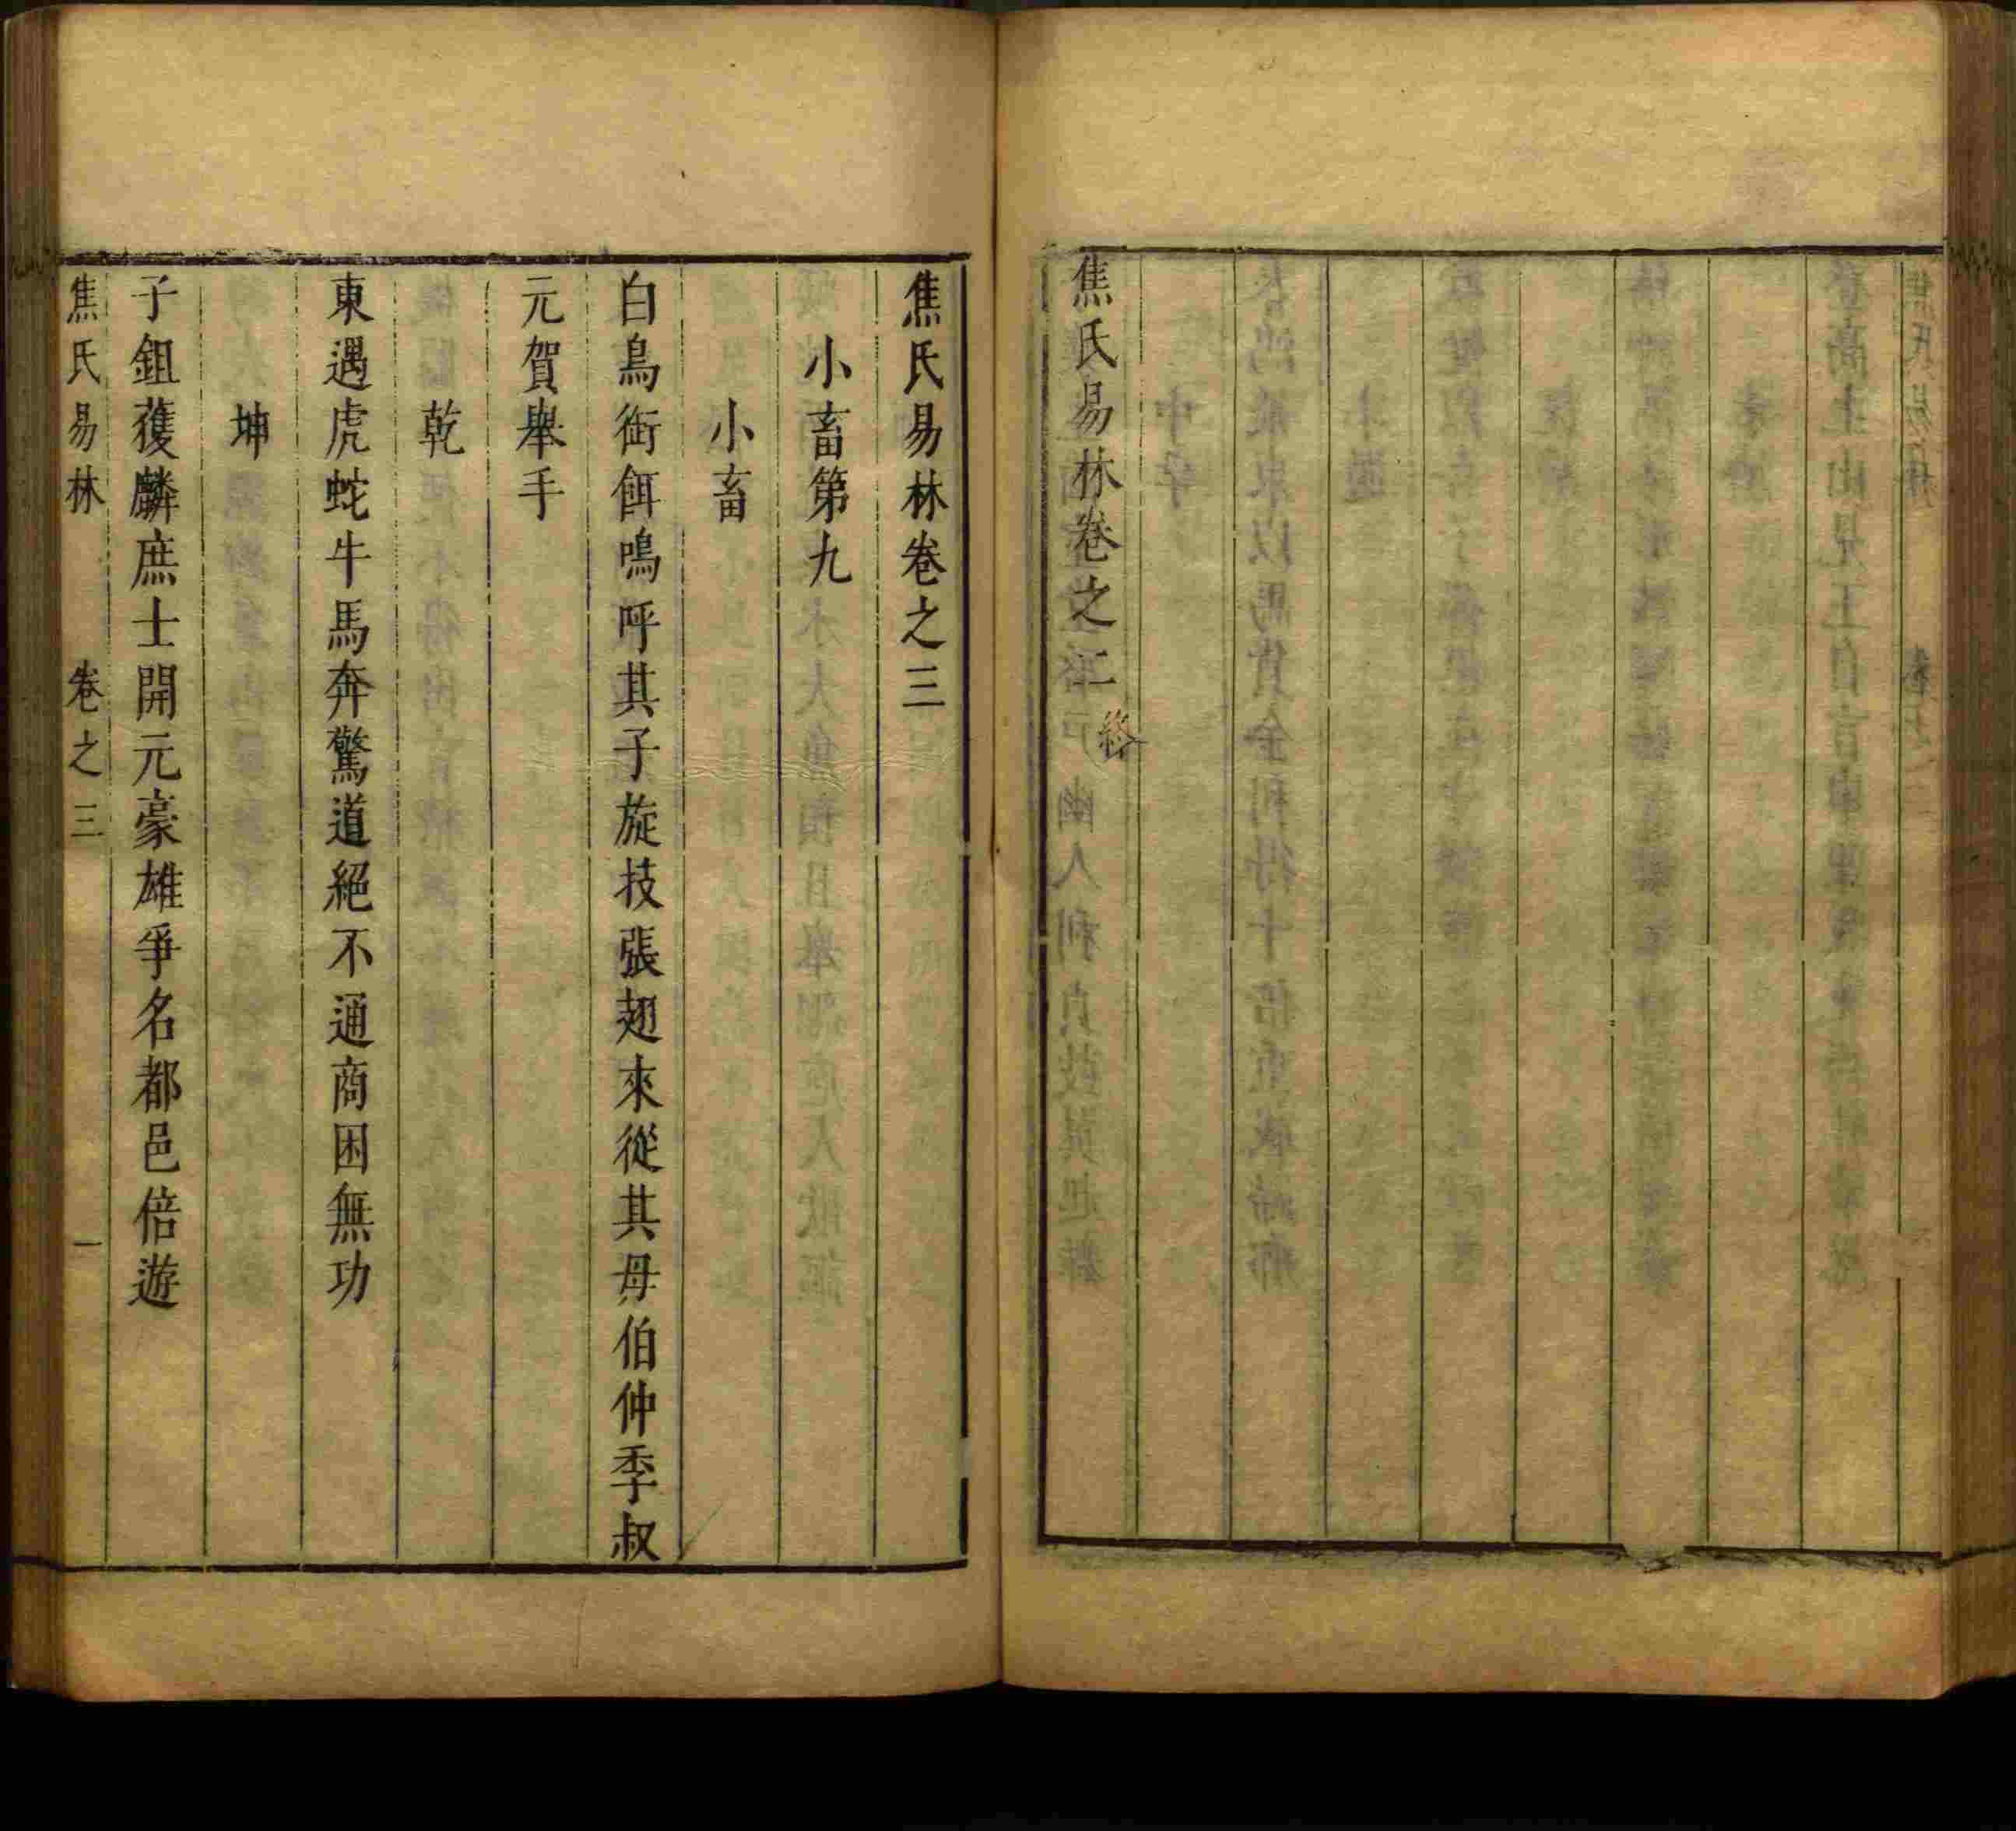 焦氏易林卷之二終
焦氏易林卷之三
小畜第九
小畜
白鳥銜餌鳴呼其子旋技張翅來從其母伯仲季叔
元賀舉手
乾
東遇虎蛇牛馬奔驚道絕不通商困無功
坤
子鉏獲麟庶士開元豪雄爭名都邑倍遊
焦氏易林　卷之三　一